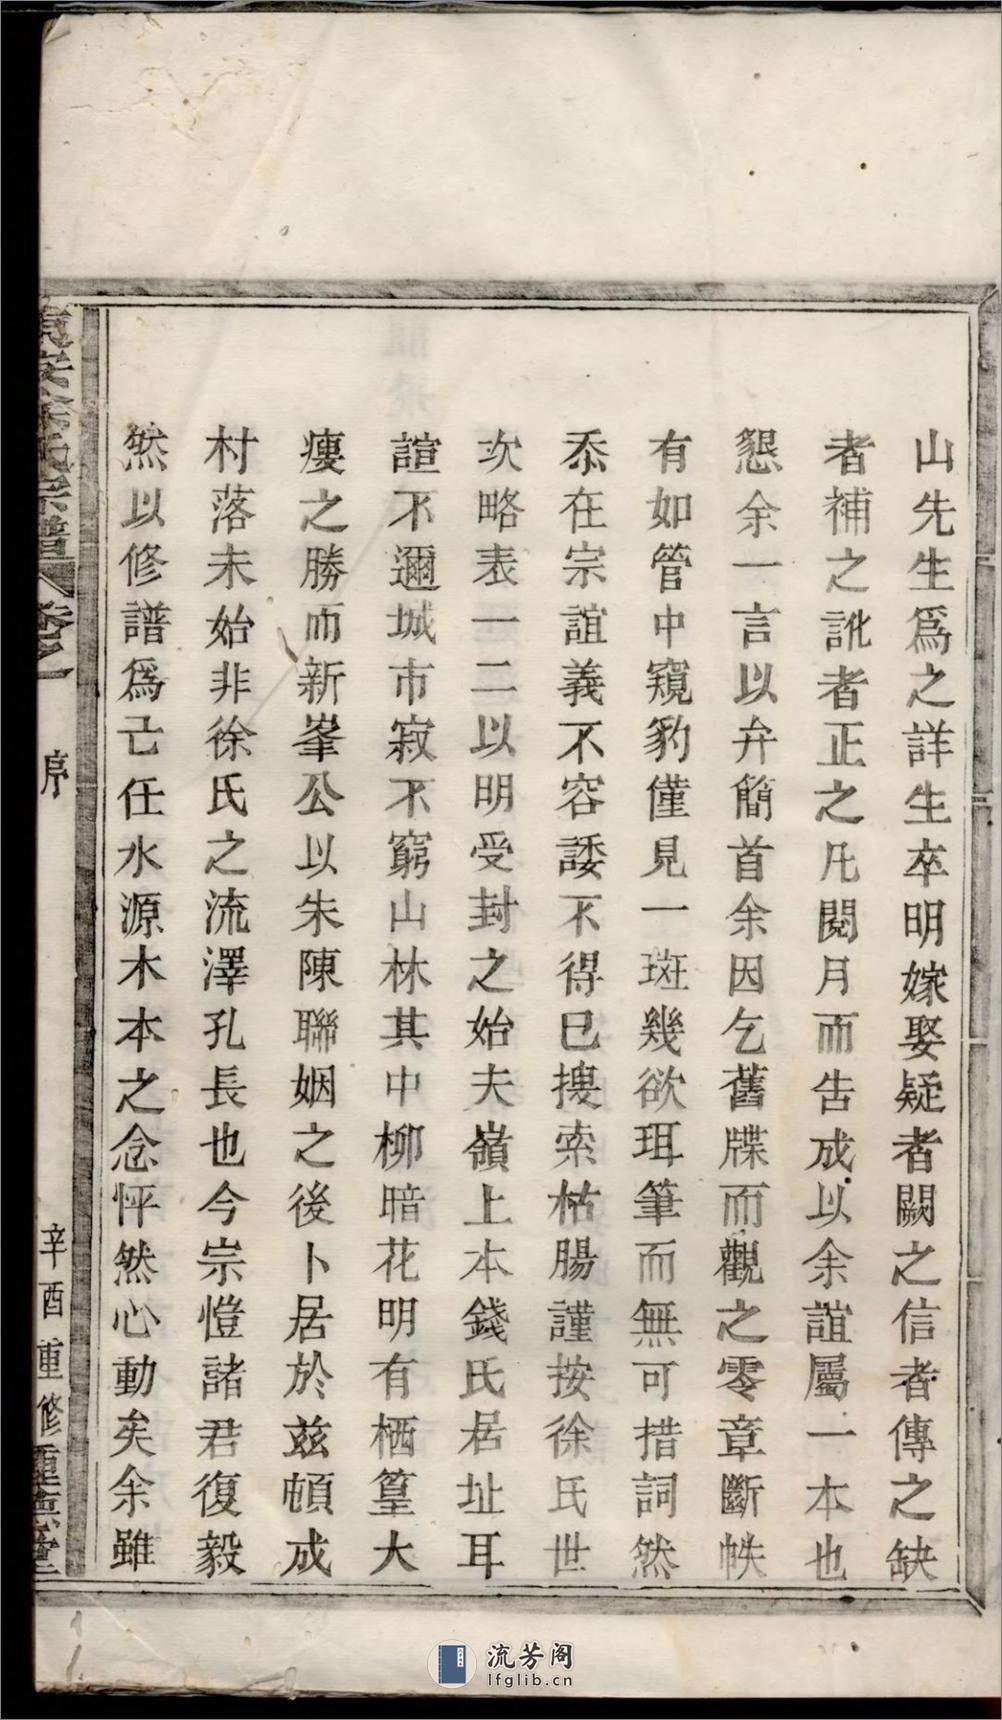 山先生爲之詳生卒明嫁娶疑者闕之信者傳之缺
者補之訛者正之凡閱月而告成以余誼屬一本也
懇余一言以弁簡首余因乞舊牒而觀之零章斷帙
有如管中窺豹僅見一斑幾欲珥筆而無可措詞然
忝在宗誼義不容諉不得已搜索枯腸謹按徐氏世
次略表一二以明受封之始夫嶺上本錢氏居址耳
諠不邇城市寂不窮山林其中柳暗花明有栖篁大
㾿之勝而新峯公以朱陳聯姻之後卜居於茲頓成
村落未始非徐氏之流澤孔長也今宗愷諸君復毅
然以修譜爲亡任水源木本之念怦然心動矣余雖
徐氏宗譜 卷之一 序 辛酉重修
流芳阁
lfglib.cn